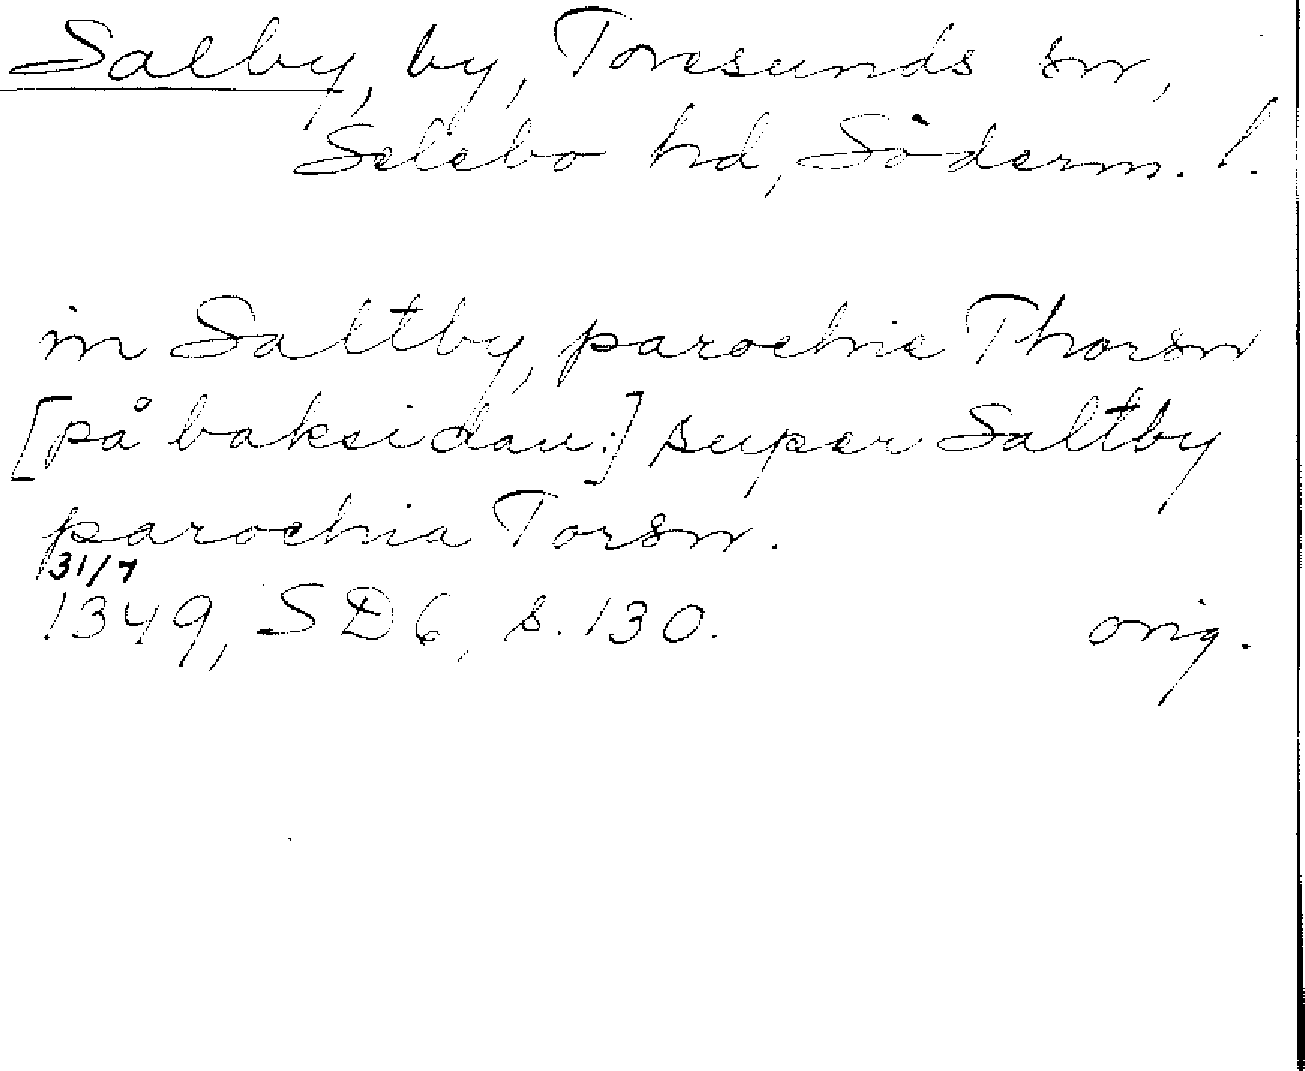 Salby, by, Toresunds sn,
Selebo hd, Söderm. l.
in Saltby, parochie Thorsn
[på baksidan:] super Saltby
parochia Torsn.
31/7
1349, SD 6, s. 130. orig.